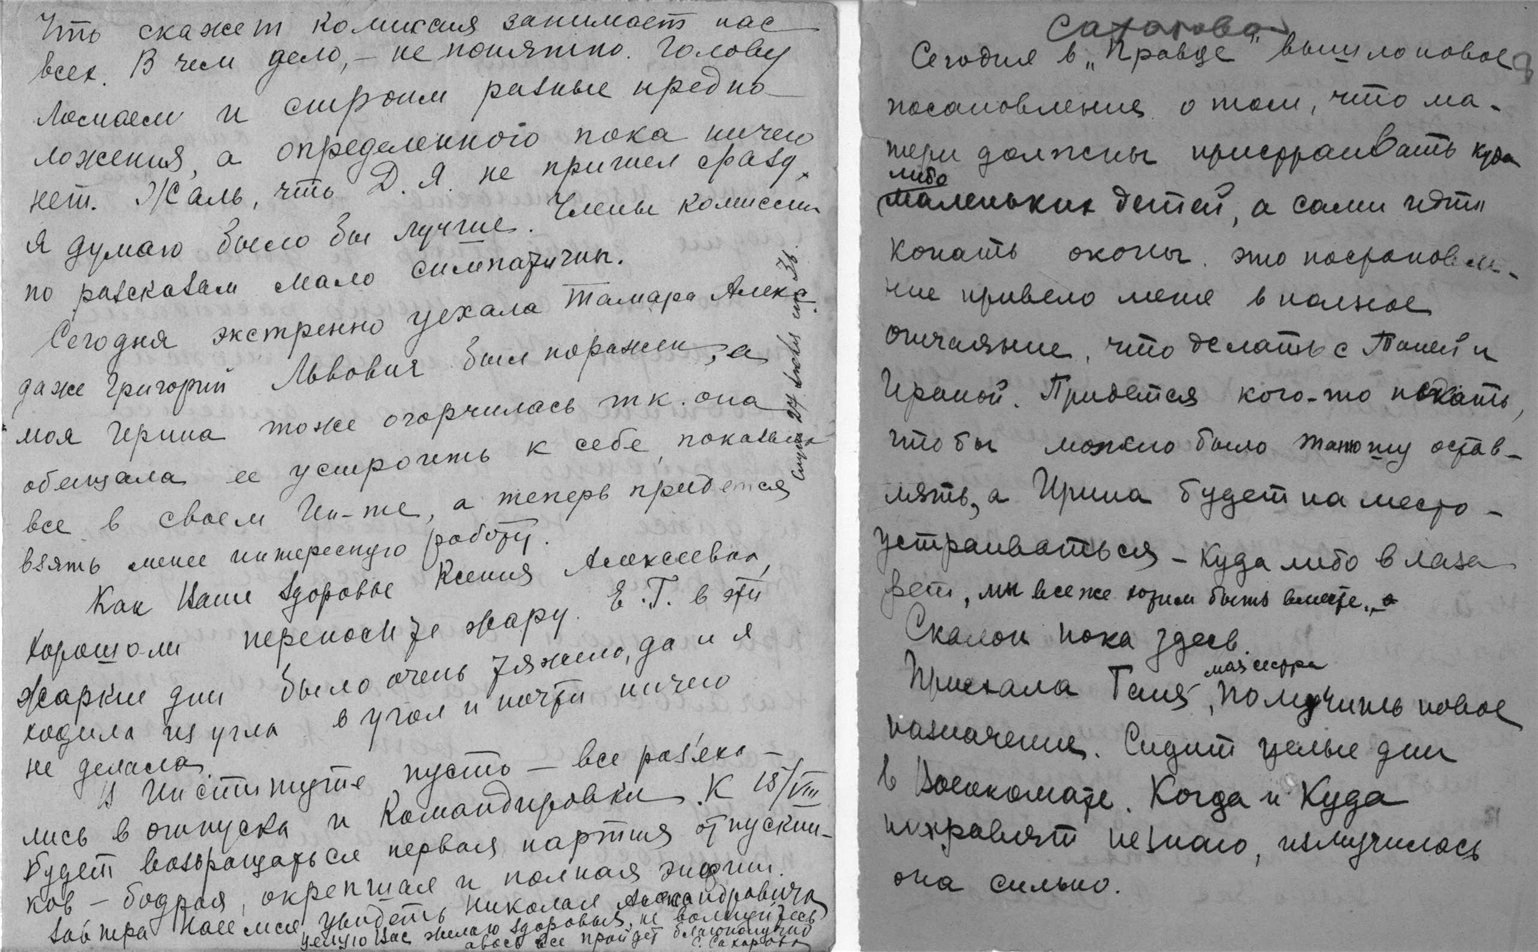 Что скажет комиссия занимает нас
всех. В чем дело, – не понятно. Голову
ломаем и строим разные предпо-
ложения, а определенного пока ничего
нет. Жаль, что Д. Я. не пришел сразу,
я думаю было бы лучше. Члены комиссии
по разсказам мало симпатичны.
Сегодня экстренно уехала Тамара Алекс.
даже Григорий Львович был поражен, а
моя Ирина тоже огорчилась т.к. она
обещала ее устроить к себе, показать
все в своем Ин-те, а теперь придется
взять менее интересную работу.
Как Ваше здоровье Ксения Алексеевна,
хорошо ли переносите жару. Е. Г. в эти
жаркие дни было очень тяжело, да и я
ходила из угла в угол и почти ничего
не делала.
В Институте пусто – все разъеха-
лись в отпуска и командировки. К 15/VIII
будет возвращаться первая партия отпускни-
ков – бодрая, окрепшая и полная энергии.
Завтра надеемся увидеть Николая Александровича
целую Вас желаю здоровья, не волнуйтесь
авось все пройдет благополучно
С. Сахарова
27 июля 36.
Сахарова
Сегодня в „Правде" вышло новое
постановление о том, что ма-
тери должны пристраивать куда
либо
маленьких детей, а сами идти
копать окопы. это постановле-
ние привело меня в полное
отчаяние, что делать с Таней и
Ириной. Придется кого-то искать,
чтобы можно было Танюшу остав-
лять, а Ирина будет на место
устраиваться – куда либо в лаза
рет, мы все же хотим быть вместе,
Скалон пока здесь.
моя сестра
Приехала Таня, получить новое
назначение. Сидит целые дни
в Военкомате. Когда и куда
направят не знаю, измучилась
она сильно.